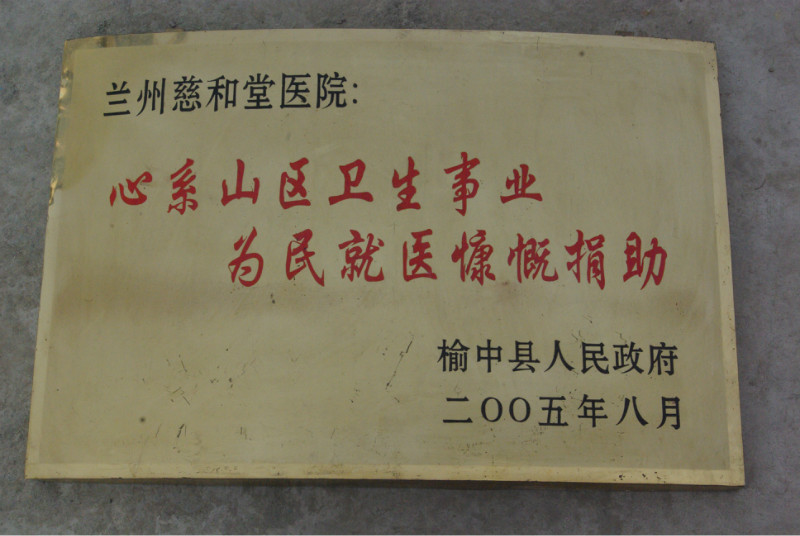 兰州慈和堂医院:
心系山区卫生事业
为民就医慷慨捐助
榆中县人民政府
二〇〇五年八月